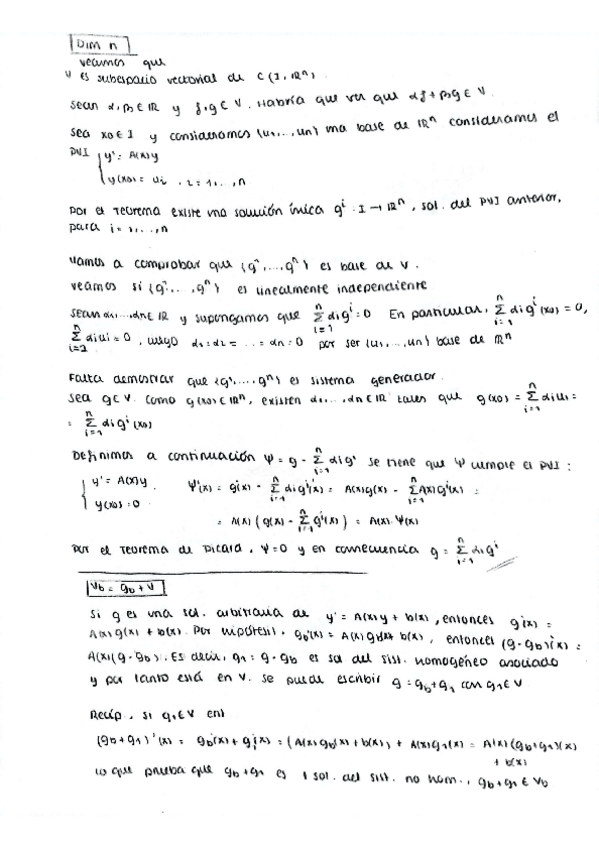 Dim n
veamos que
V es subespacio vectorial de C(I, ℝⁿ).
sean α, β ∈ ℝ y f, g ∈ V. Habría que ver que αf + βg ∈ V
sea x0 ∈ I y consideramos {u1, ..., un} una base de ℝⁿ consideramos el
PVI { y' = A(x)y
y(x0) = ui , i = 1, ..., n
por el teorema existe una solución única gⁱ : I → ℝⁿ, sol. del PVI anterior,
para i = 1, ..., n
vamos a comprobar que {g¹, ..., gⁿ} es base de V.
veamos si {g¹, ..., gⁿ} es linealmente independiente
sean α1, ..., αn ∈ ℝ y supongamos que Σⁿᵢ₌₁ αi gⁱ = 0 En particular, Σⁿᵢ₌₁ αi gⁱ(x0) = 0,
Σⁿᵢ₌₁ αi ui = 0, luego α1 = α2 = ... = αn = 0 por ser {u1, ..., un} base de ℝⁿ
Falta demostrar que {g¹, ..., gⁿ} es sistema generador.
Sea g ∈ V. como g(x0) ∈ ℝⁿ, existen α1, ..., αn ∈ ℝ tales que g(x0) = Σⁿᵢ₌₁ αi ui =
= Σⁿᵢ₌₁ αi gⁱ(x0)
Definimos a continuación Ψ = g - Σⁿᵢ₌₁ αi gⁱ se tiene que Ψ cumple el PVI :
{ y' = A(x)y . Ψ'(x) = g'(x) - Σⁿᵢ₌₁ αi gⁱ'(x) = A(x)g(x) - Σⁿᵢ₌₁ A(x)gⁱ(x) =
y(x0) = 0 = A(x) (g(x) - Σⁿᵢ₌₁ gⁱ(x)) = A(x) Ψ(x)
por el teorema de Picard, Ψ = 0 y en consecuencia g = Σⁿᵢ₌₁ αi gⁱ
Vb = gb + V
Si g es una sol. arbitraria de y' = A(x)y + b(x), entonces g'(x) =
A(x)g(x) + b(x). Por hipótesis, gb'(x) = A(x)gb(x) + b(x), entonces (g - gb)'(x) =
A(x)(g - gb). Es decir, g1 = g - gb es sol del sist. homogéneo asociado
y por tanto está en V. se puede escribir g = gb + g1 con g1 ∈ V
Recíp. si g1 ∈ V ent
(gb + g1)'(x) = gb'(x) + g1'(x) = (A(x)gb(x) + b(x)) + A(x)g1(x) = A(x)(gb + g1)(x)
+ b(x)
lo que prueba que gb + g1 es 1 sol. del sist. no hom., gb + g1 ∈ Vb